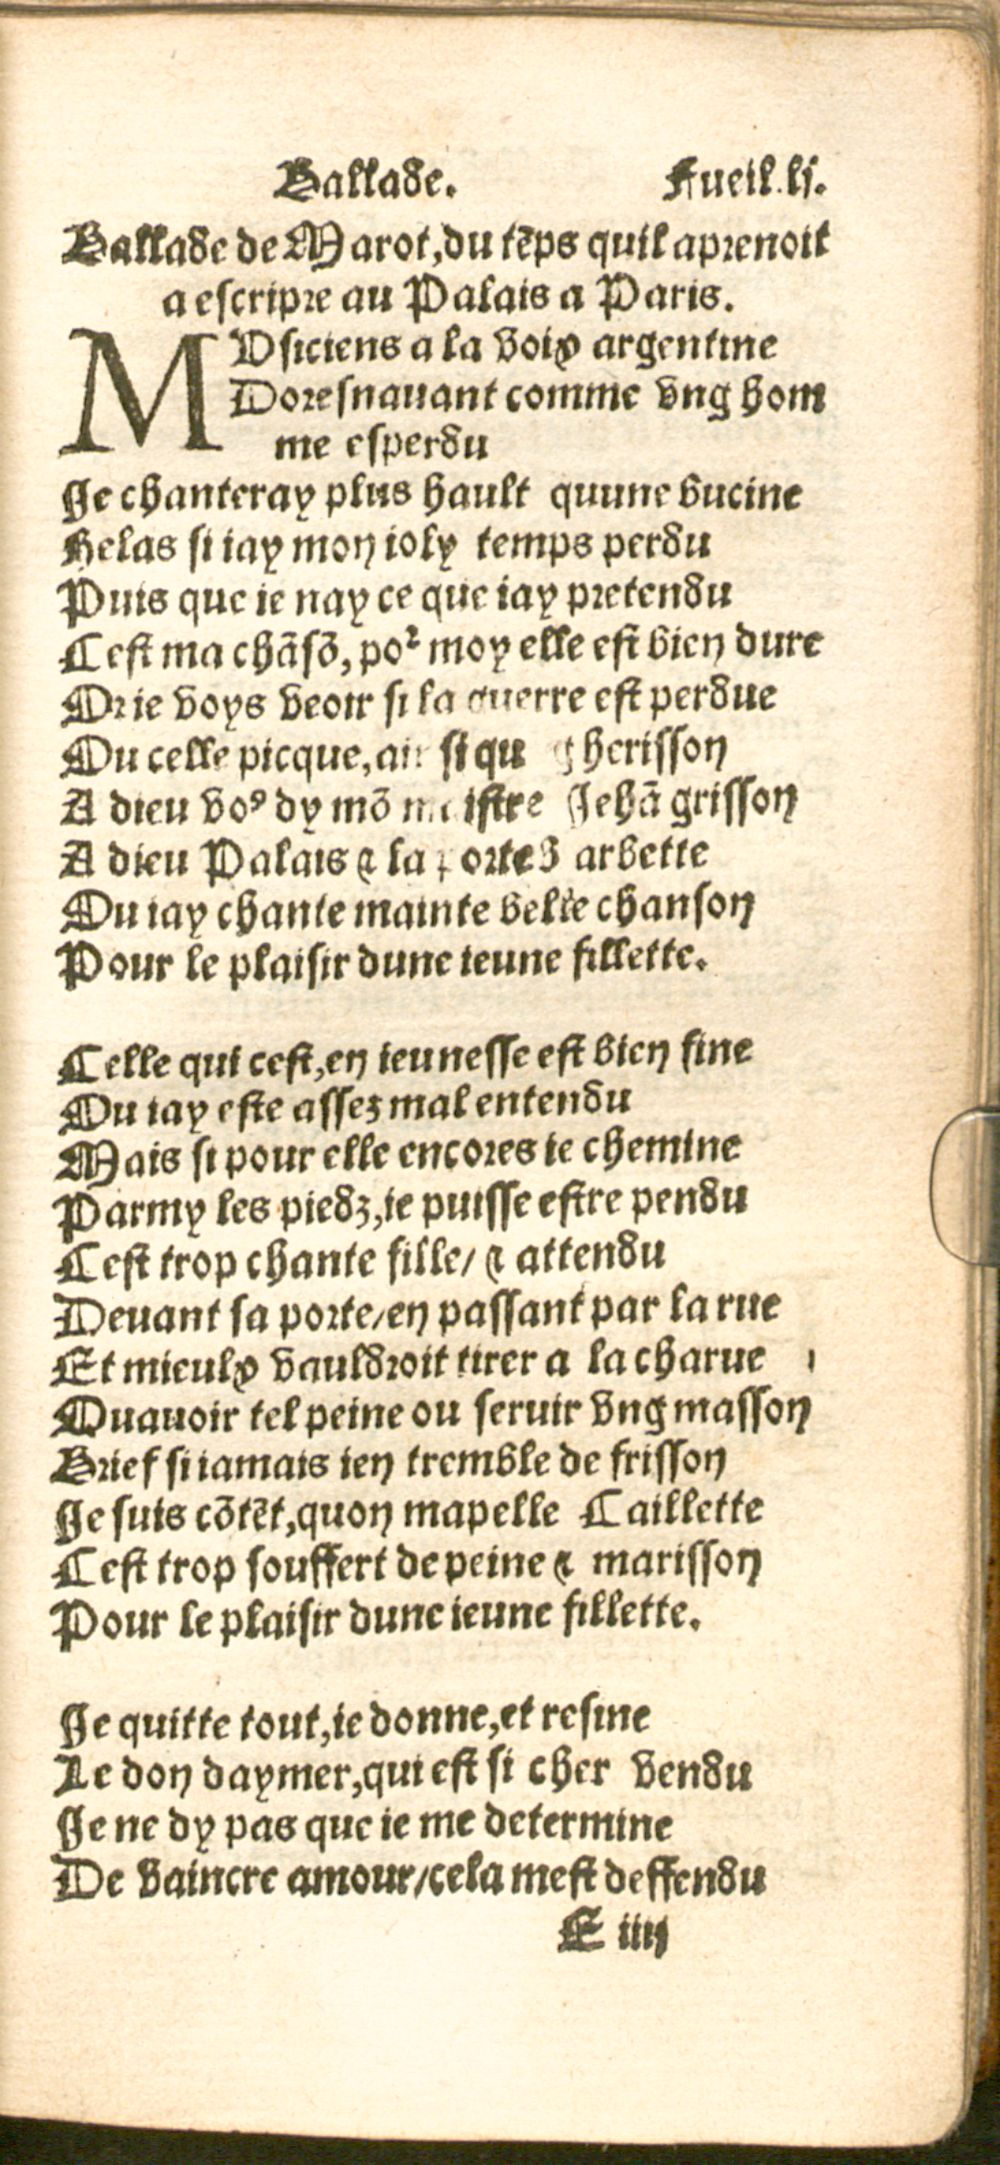 Ballade. Fueil. li.
Ballade de Marot, du tẽps quil aprenoit
a escripre au Palais a Paris.
MVsiciens a la voix argentine
Doresnauant comme vng hom
me esperdu
Je chanteray plus hault quune bucine
Helas si iay mon ioly temps perdu
Puis que ie nay ce que iay pretendu
Cest ma chãsõ, poꝛ moy elle est bien dure
Or ie voys veoir si la guerre est perdue
Ou celle picque, ainsi qu g herisson
A dieu voꝰ dy mõ maistre Jehã grisson
A dieu Palais ⁊ la porte barbette
Ou iay chante mainte belle chanson
Pour le plaisir dune ieune fillette.
Celle qui cest, en ieunesse est bien fine
Ou iay este assez mal entendu
Mais si pour elle encores ie chemine
Parmy les piedz, ie puisse estre pendu
Cest trop chante sille/ ⁊ attendu
Deuant sa porte/ en passant par la rue
Et mieulx vauldroit tirer a la charue
Quauoir tel peine ou seruir vng masson
Brief si iamais ien tremble de frisson
Je suis cõtẽt, quon mapelle Caillette
Cest trop souffert de peine ⁊ marisson
Pour le plaisir dune ieune fillette.
Je quitte tout, ie donne, et resine
Le don daymer, qui est si cher vendu
Je ne dy pas que ie me determine
De vaincre amour/ cela mest deffendu
E iiij